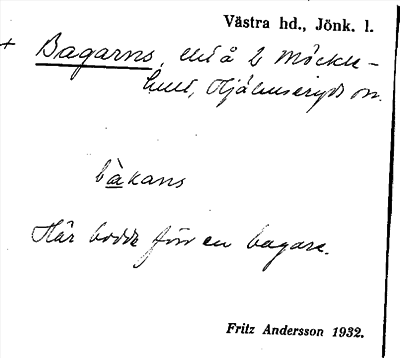 Västra hd., Jönk. l.
+ Bagarns, på 2 Möckle-
hult, Hjälmseryds sn.
bàkans
Här bodde förr en bagare.
Fritz Andersson 1932.